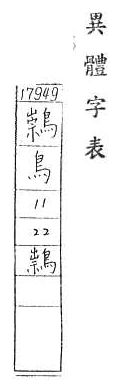 異體字表
17949
鳥
11
22